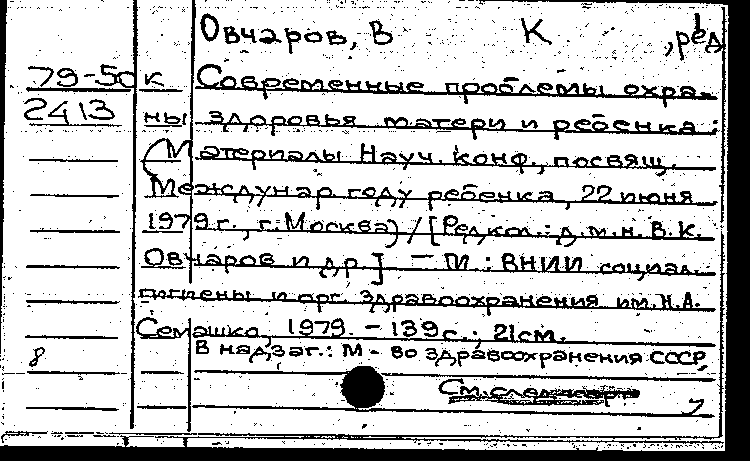 Овчаров, В К , ред
79-50к Современные проблемы охра-
2413 ны здоровья матери и ребенка:
(Материалы Науч. конф., посвящ.
Междунар году ребенка, 22 июня
1979г., г. Москва) / [Редкол.: д.м.н. В.К.
Овчаров и др.] – М : ВНИИ социал.
гигиены и орг. здравоохранения им. Н.А.
Семашко, 1979. – 139с.; 21см.
В надзаг.: М-во здравоохранения СССР,
8
См. след. карт